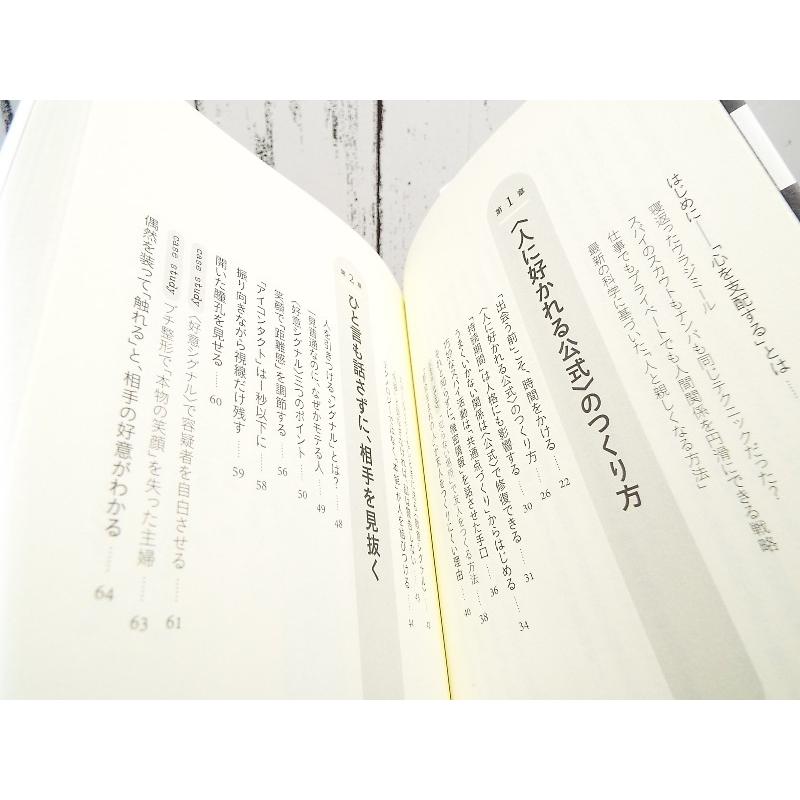 はじめに――「心を支配する」とは……
寝返ったウラジミール
スパイのスカウトもナンパも同じテクニックだった?
仕事でもプライベートでも人間関係を円滑にできる戦略
最新の科学に基づいた「人と親しくなる方法」
第1章
〈人に好かれる公式〉のつくり方
「出会う前」こそ、時間をかける……22
〈人に好かれる公式〉のつくり方……26
「持続期間」は人格にも影響する……30
うまくいかない関係は〈公式〉で修復できる……31
大切なスパイ活動は、「共通点づくり」からはじめる……34
「機密情報」を話させた手口……36
友人をつくる方法……38
にくい理由……40
44
第2章
ひと言も話さずに、相手を見抜く
人を引きつける「シグナル」とは?……48
一見普通なのに、なぜかモテる人……49
〈好意シグナル〉三つのポイント……50
笑顔で「距離感」を調節する……56
「アイコンタクト」は一秒以下に……58
振り向きながら視線だけ残す……59
開いた瞳孔を見せる……60
case study 〈好意シグナル〉で容疑者を自白させる……61
case study プチ整形で「本物の笑顔」を失った主婦……63
偶然を装って「触れる」と、相手の好意がわかる……64